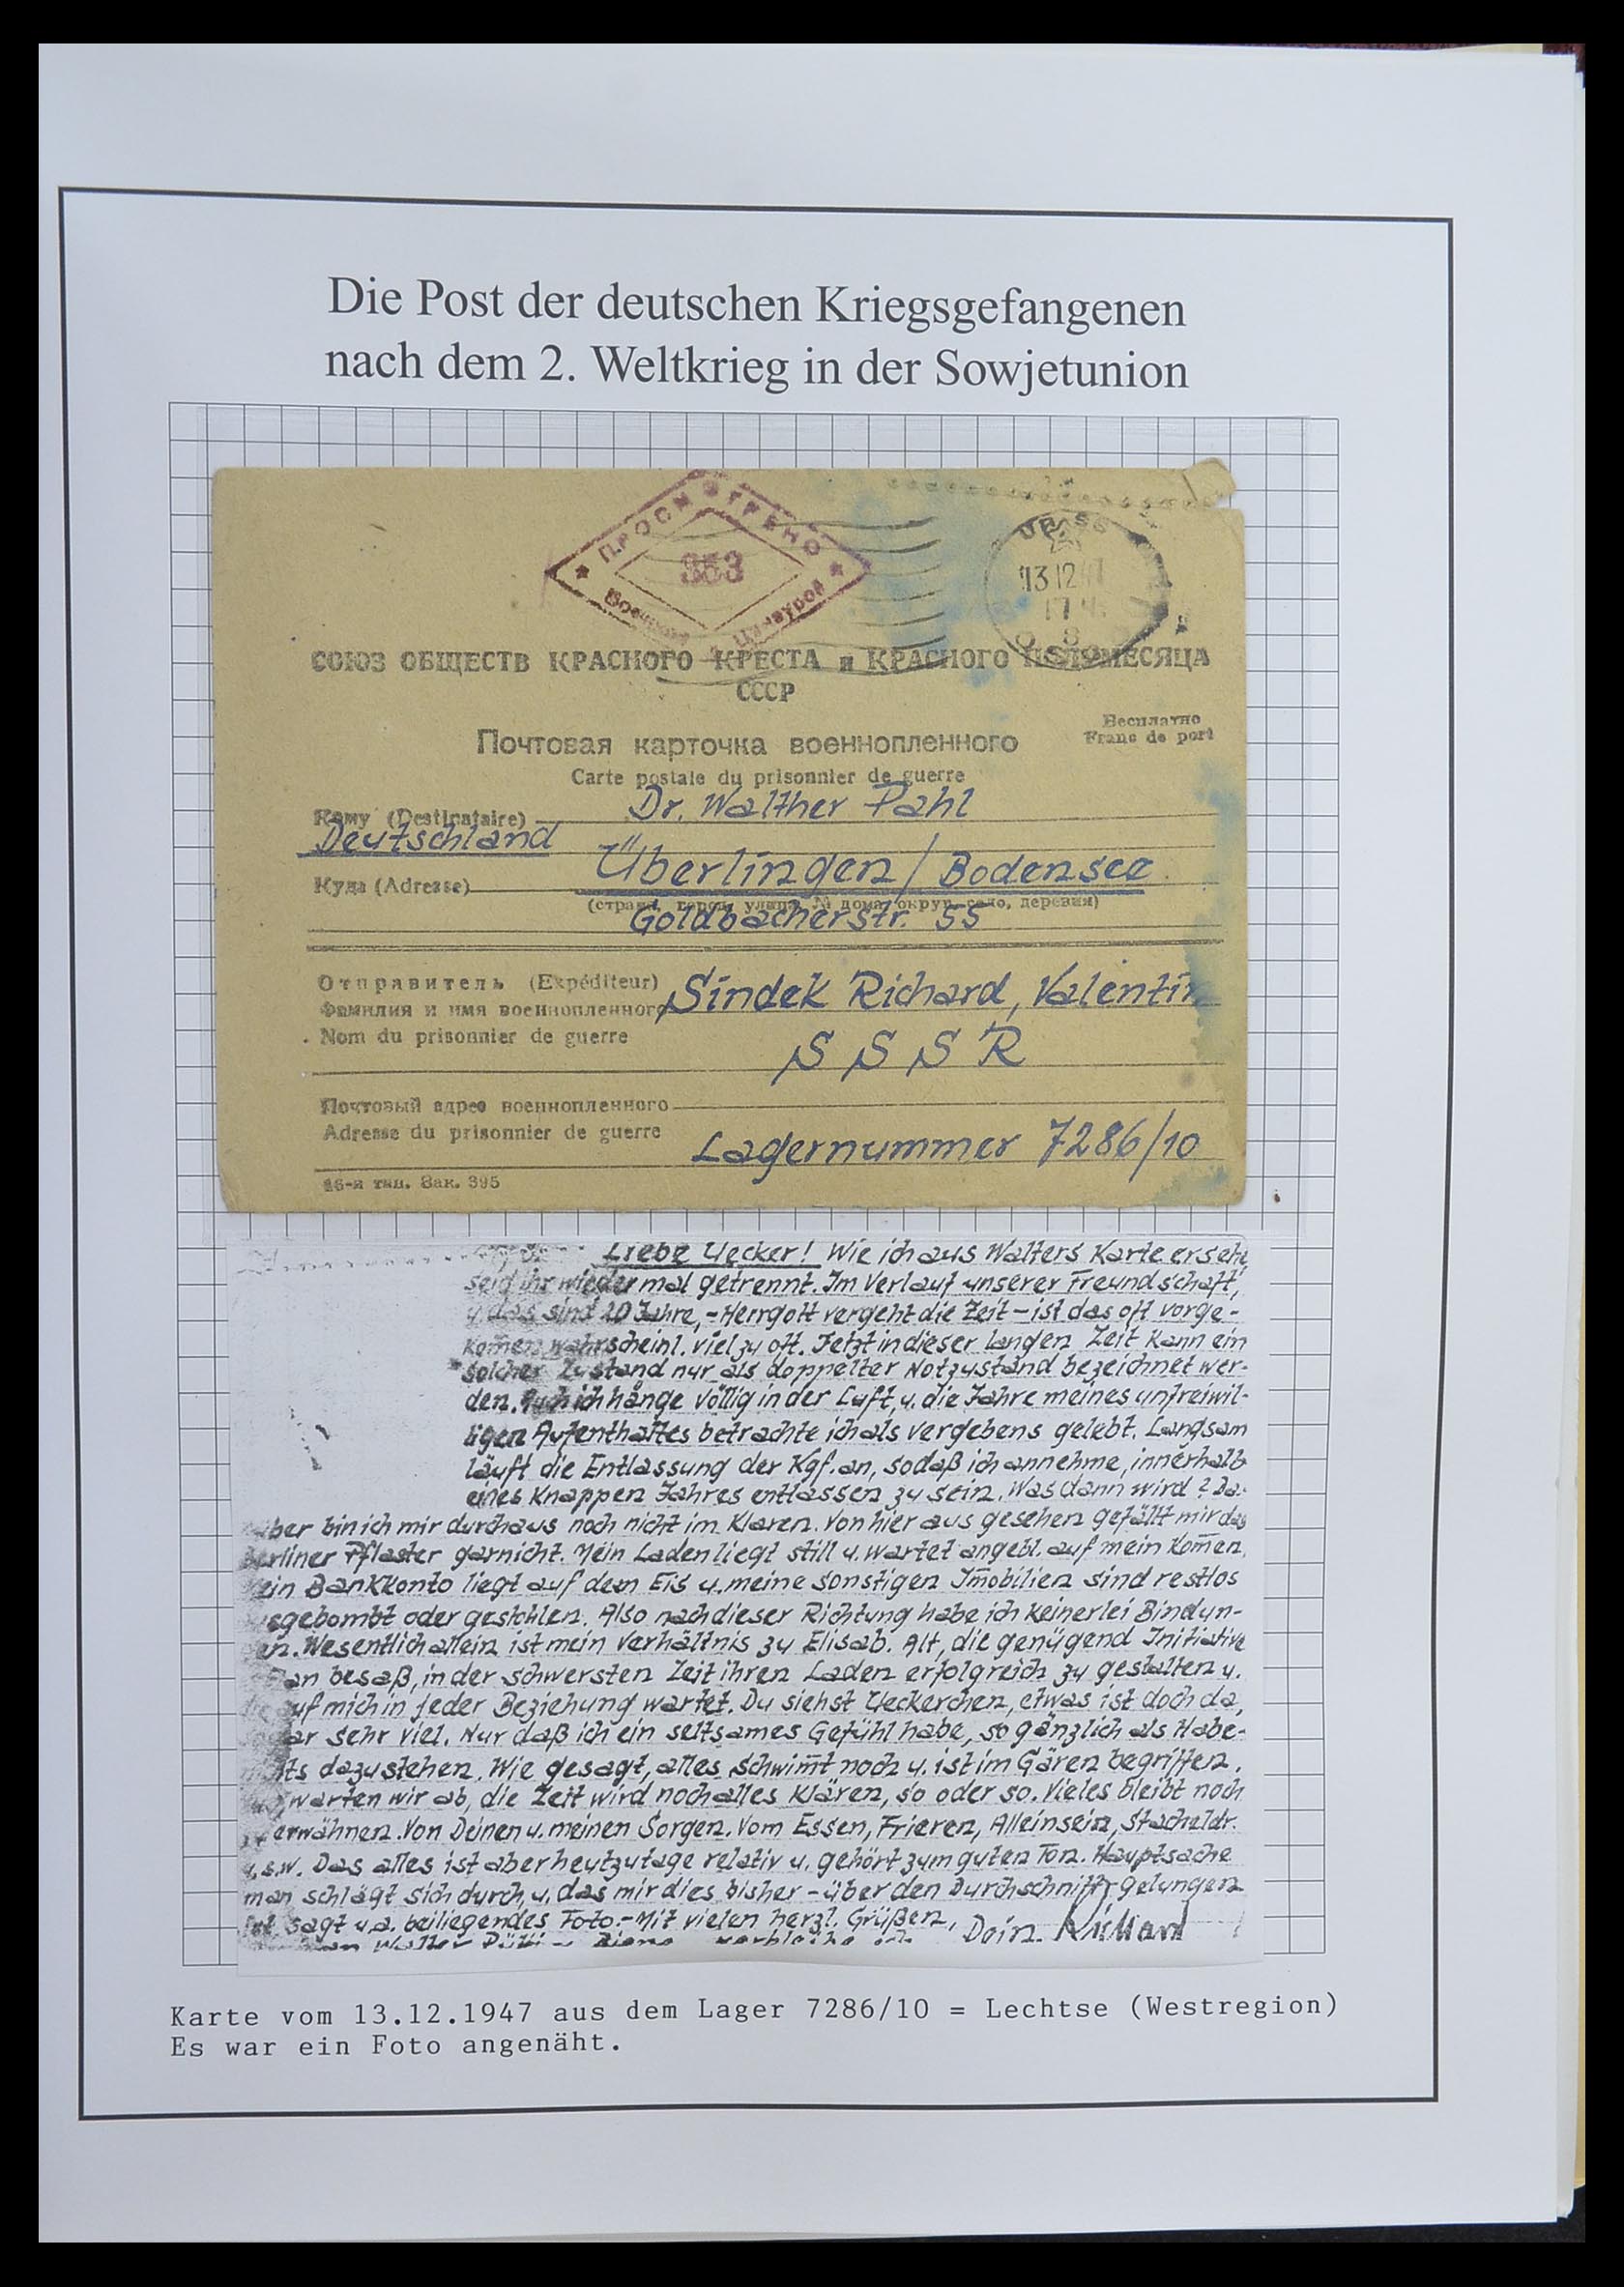 Die Post der deutschen Kriegsgefangenen
nach dem 2. Weltkrieg in der Sowjetunion
ПРОСМОТРЕНО
353
Военной Цензурой
URSS
13 12 47
17
СОЮЗ ОБЩЕСТВ КРАСНОГО КРЕСТА и КРАСНОГО ПОЛУМЕСЯЦА
СССР
Бесплатно
Franc de port
Почтовая карточка военнопленного
Carte postale du prisonnier de guerre
Кому (Destinataire) Dr. Walther Pahl
Deutschland
Куда (Adresse) Überlingen / Bodensee
(страна, город, улица, № дома, округ, село, деревня)
Goldbacherstr. 55
Отправитель (Expéditeur)
Фамилия и имя военнопленного Sindek Richard, Valentin
Nom du prisonnier de guerre
S S S R
Почтовый адрес военнопленного
Adresse du prisonnier de guerre Lagernummer 7286/10
16-я тип. Зак. 395
Liebe Uecker! Wie ich aus Walters Karte ersehe,
seid ihr wieder mal getrennt. Im Verlauf unserer Freundschaft,
u. das sind 20 Jahre, - Herrgott vergeht die Zeit - ist das oft vorge-
kom̄en, wahrscheinl. viel zu oft. Jetzt in dieser langen Zeit kann ein
solcher Zustand nur als doppelter Notzustand bezeichnet wer-
den. Auch ich hänge völlig in der Luft, u. die Jahre meines unfreiwil-
ligen Aufenthaltes betrachte ich als vergebens gelebt. Langsam
läuft die Entlassung der Kgf. an, sodaß ich annehme, innerhalb
eines knappen Jahres entlassen zu sein. Was dann wird? Da-
rüber bin ich mir durchaus noch nicht im Klaren. Von hier aus gesehen gefällt mir das
Berliner Pflaster garnicht. Mein Laden liegt still u. wartet angebl. auf mein Kom̄en.
Mein Bankkonto liegt auf dem Eis u. meine sonstigen Im̄obilien sind restlos
ausgebombt oder gestohlen. Also nach dieser Richtung habe ich keinerlei Bindun-
gen. Wesentlich allein ist mein Verhältnis zu Elisab. Alt, die genügend Initiative
an besaß, in der schwersten Zeit ihren Laden erfolgreich zu gestalten u.
die auf mich in jeder Beziehung wartet. Du siehst Ueckerchen, etwas ist doch da,
sogar sehr viel. Nur daß ich ein seltsames Gefühl habe, so gänzlich als Habe-
nichts dazustehen. Wie gesagt, alles schwim̄t noch u. ist im Gären begriffen.
warten wir ab, die Zeit wird noch alles klären, so oder so. Vieles bleibt noch
zu erwähnen. Von Deinen u. meinen Sorgen. Vom Essen, Frieren, Alleinsein, Stacheldr.
u.s.w. Das alles ist aber heutzutage relativ u. gehört zum guten Ton. Hauptsache
man schlägt sich durch, u. das mir dies bisher - über den Durchschnitt - gelungen
ist, sagt u.a. beiliegendes Foto. - Mit vielen herzl. Grüßen,
Dein Richard
Karte vom 13.12.1947 aus dem Lager 7286/10 = Lechtse (Westregion)
Es war ein Foto angenäht.